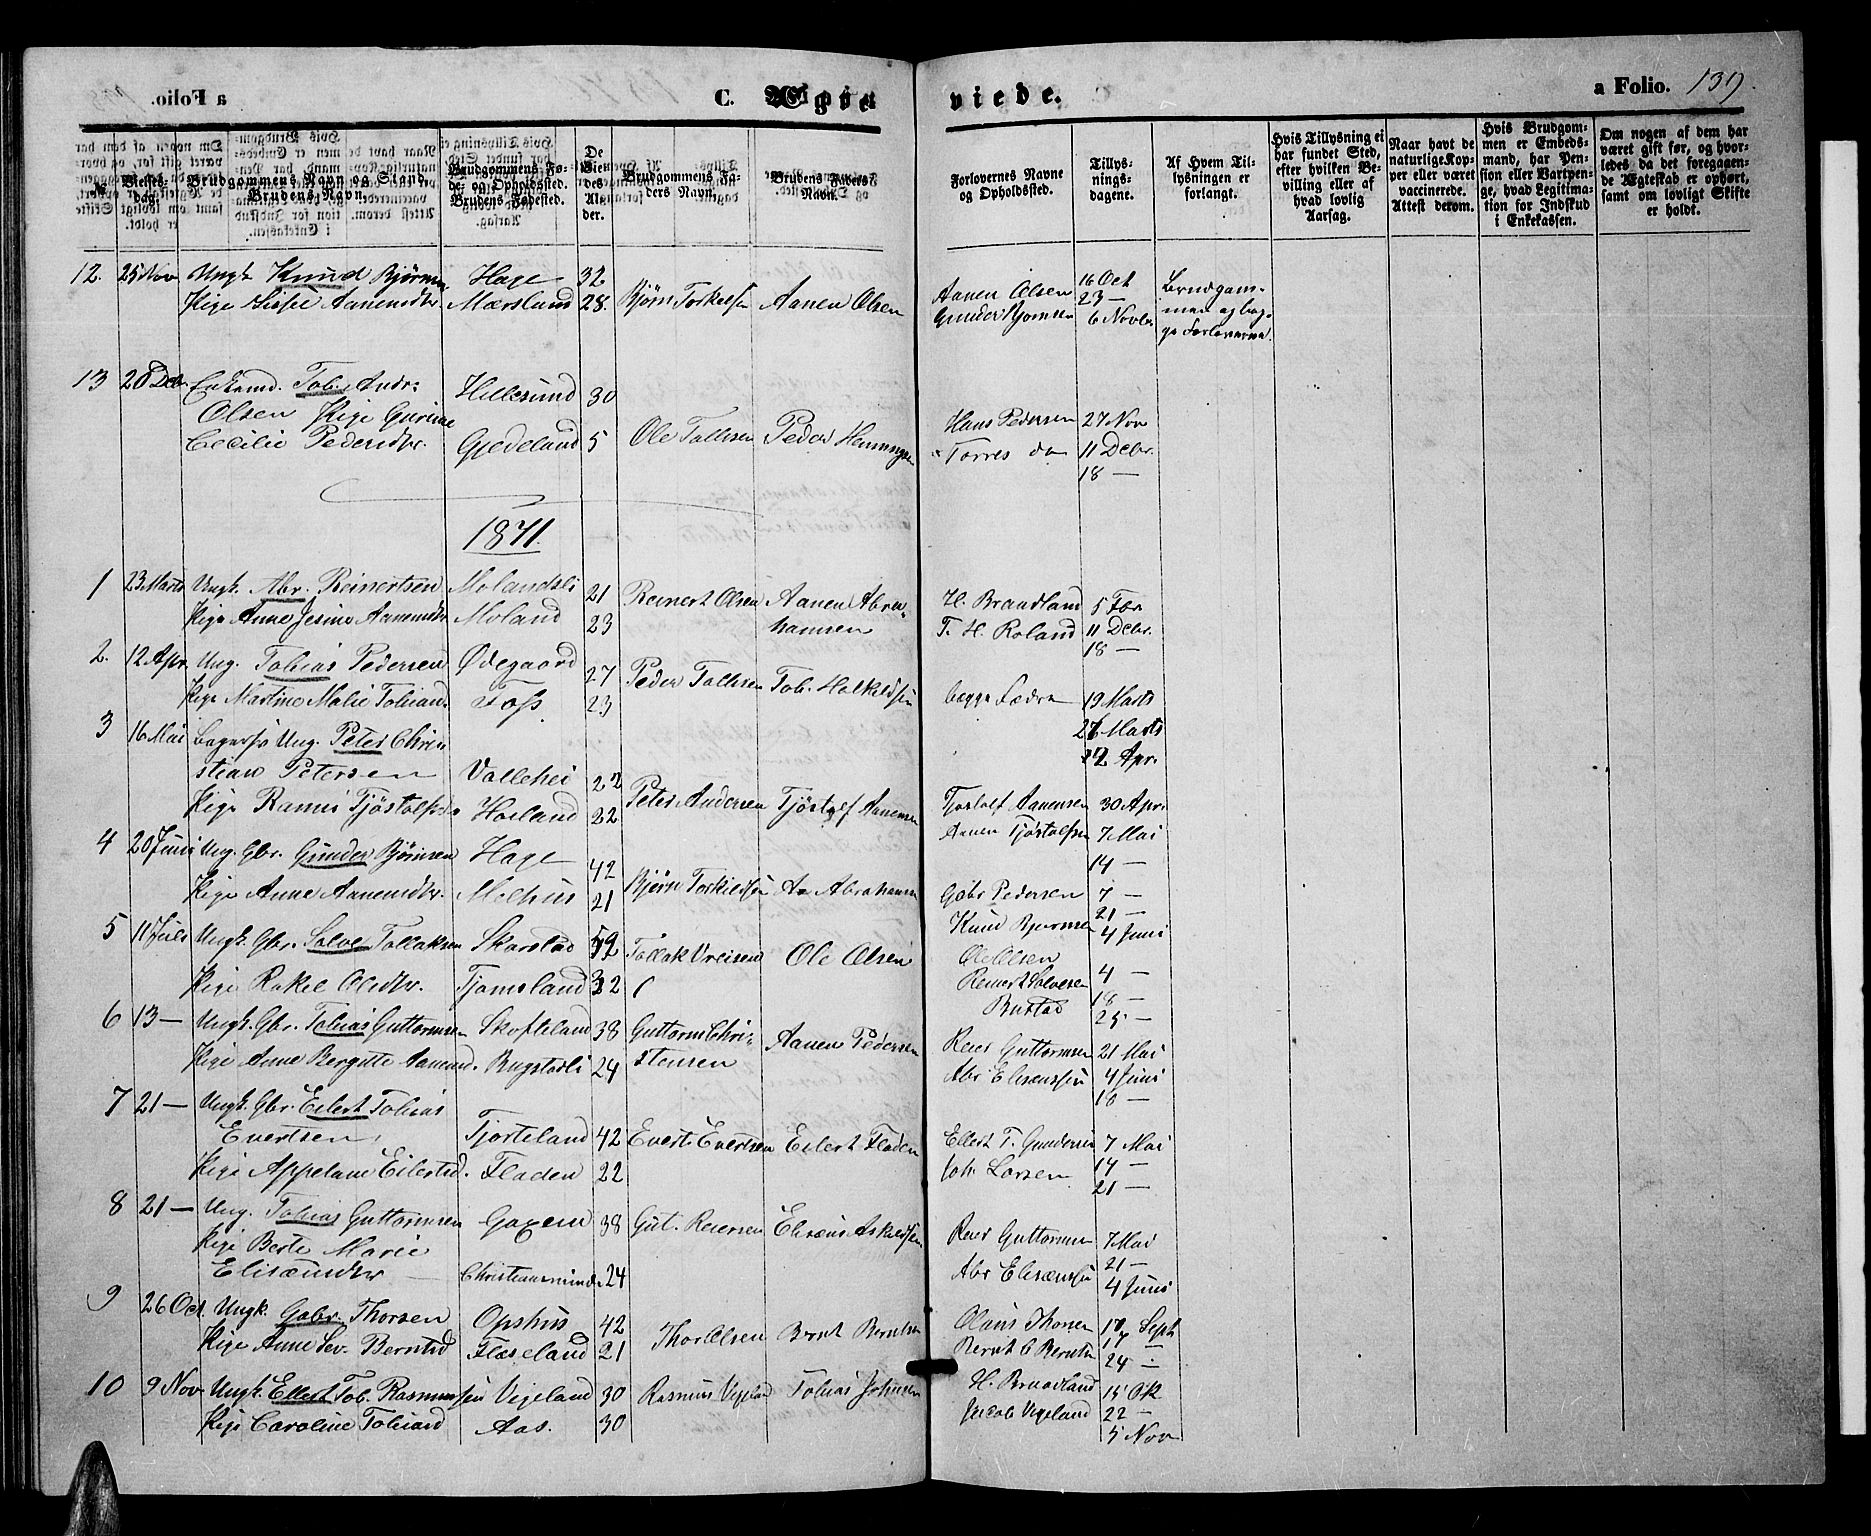 C. Ægte
viede.
a Folio. 139.
No.
Vielses-
dag.
Brudgommens Navn og Stand.
Brudens Navn.
Brudgommens Fø-
de- og Opholdssted.
Brudens Fødested.
De
Viedes
Al-
der.
Brudgommens Fa-
ders Navn.
Brudens Faders
Navn.
Forlovernes Navne
og Opholdssted.
Tillys-
nings-
dagene.
Af Hvem Til-
lysningen er
forlangt.
Hvis Tillysning ei
har fundet Sted,
efter hvilken Be-
villing eller af
hvad lovlig
Aarsag.
Naar havt de
naturlige Kop-
per eller været
vaccinerede.
Attest derom.
Hvis Brudgom-
men er Embeds-
mand, har Pen-
sion eller Vartpen-
ge, hvad Legitima-
tion for Indskud
i Enkekassen.
Om nogen af dem har
været gift før, og hvor-
ledes da det foregaaen-
de Ægteskab er ophørt,
samt om lovligt Skifte
er holdt.
12. 25 Nov Ungk Knud Bjørnsen Hage 32
Pige Aanensdtr. Mærsland 28. Bjørn Torkelsen Aanen Olsen
Aanen Olsen 16 Oct Brudgom-
Gunder Bjornsen 23 — men og beg-
6 Novbr ge Forloverne
13 20 Debr Enkemd. Tob. Andr: Hillesund 30
Olsen Pige Gurine
Cecilie Pedersdtr. Gjedeland 5 Ole Tallsen Peder Henningsen
Hans Pedersen 27 Nov
Torres do 11 Debr.
18 —
1871.
1 23 Marts Ungk. Abr. Reinertsen Molandsli 21 Reinert Olsen Aanen Abra-
Pige Anne Jesine Aanensdtr Moland 23 hamsen
H. Brandland 5 Feb
T. H. Roland 11 Debr.
18 —
2. 12 Apr. Ung. Tobias Pedersen Ødegaard 27 Peder Tallsen Tob.
Pige Martine Malie Tobiasd. Foss 23
begge Fædre 19 Marts
26 Marts
2 Apr.
3 16 Mai Ung. Peter Chri-
stian Petersen Vallehei 22
Pige Tjøstolfsd Høiland 22 Peter Andersen Tjøstolf Aanensen
Tjostolf Aanensen 30 Apr.
Aanen Tjøstolfsen 7 Mai
14 —
4 20 Juni Ung. Gbr. Gunder Bjørnsen Hage 42
Pige Anne Aanensdtr. Melhus 21 Bjørn Torkildsen Aa Abrahamsen
Gabr Pedersen 7 —
Knud Bjørnsen 21 —
4 Juni
5 11 Juli Ungk. Gbr. Salve Tallaksen Skarstad 52 Tallak Ole Olsen
Pige Rakel Olsdtr. Tjomsland 32
Ole Olsen
Reinert Salvesen 4 —
Bustad 18 —
25 —
6 13 — Ungk. Gbr. Tobias Guttormsen Skofteland 38 Guttorm Chri-
Pige Anne Bergitte Aanensd. Rugstadli 24 stensen Aanen Pedersen
Reier Guttormsen 21 Mai
Abr Elisæussen 4 Juni
18 —
7 21 — Ungk. Gbr. Eilert Tobias
Evertsen Tjorteland 42 Evert Evertsen Eilert Fladen
Pige Appelone Eilertsd. Fladen 22
Ellert T. Gundersen 7 Mai
Joh. Larsen 14 —
21 —
8 21 — Ung. Tobias Guttormsen 38 Gut. Reiersen Elisæus Askildsen
Pige Berte Marie
Elisæusdtr — Christiansminde 24
Reier Guttormsen 7 Mai
Abr Elisæussen 21 —
4 Juni
9 26 Oct. Ungk. Gabr. Thorsen Opshus 42
Pige Anne Sev. Berntsd Fladseland 21 Thor Olsen Bernt Berntsen
Olaus Thorsen 17 Sept
Bernt B Berntsen 17 —
24 —
10 9 Nov Ungk Ellert Tob. Rasmussen Vigeland 30 Rasmus Vigeland Tobias Johnsen
Pige Caroline Tobiasd Aas. 30
H. Brandland 15 Okt
Jacob Vigeland 22 —
5 Nov